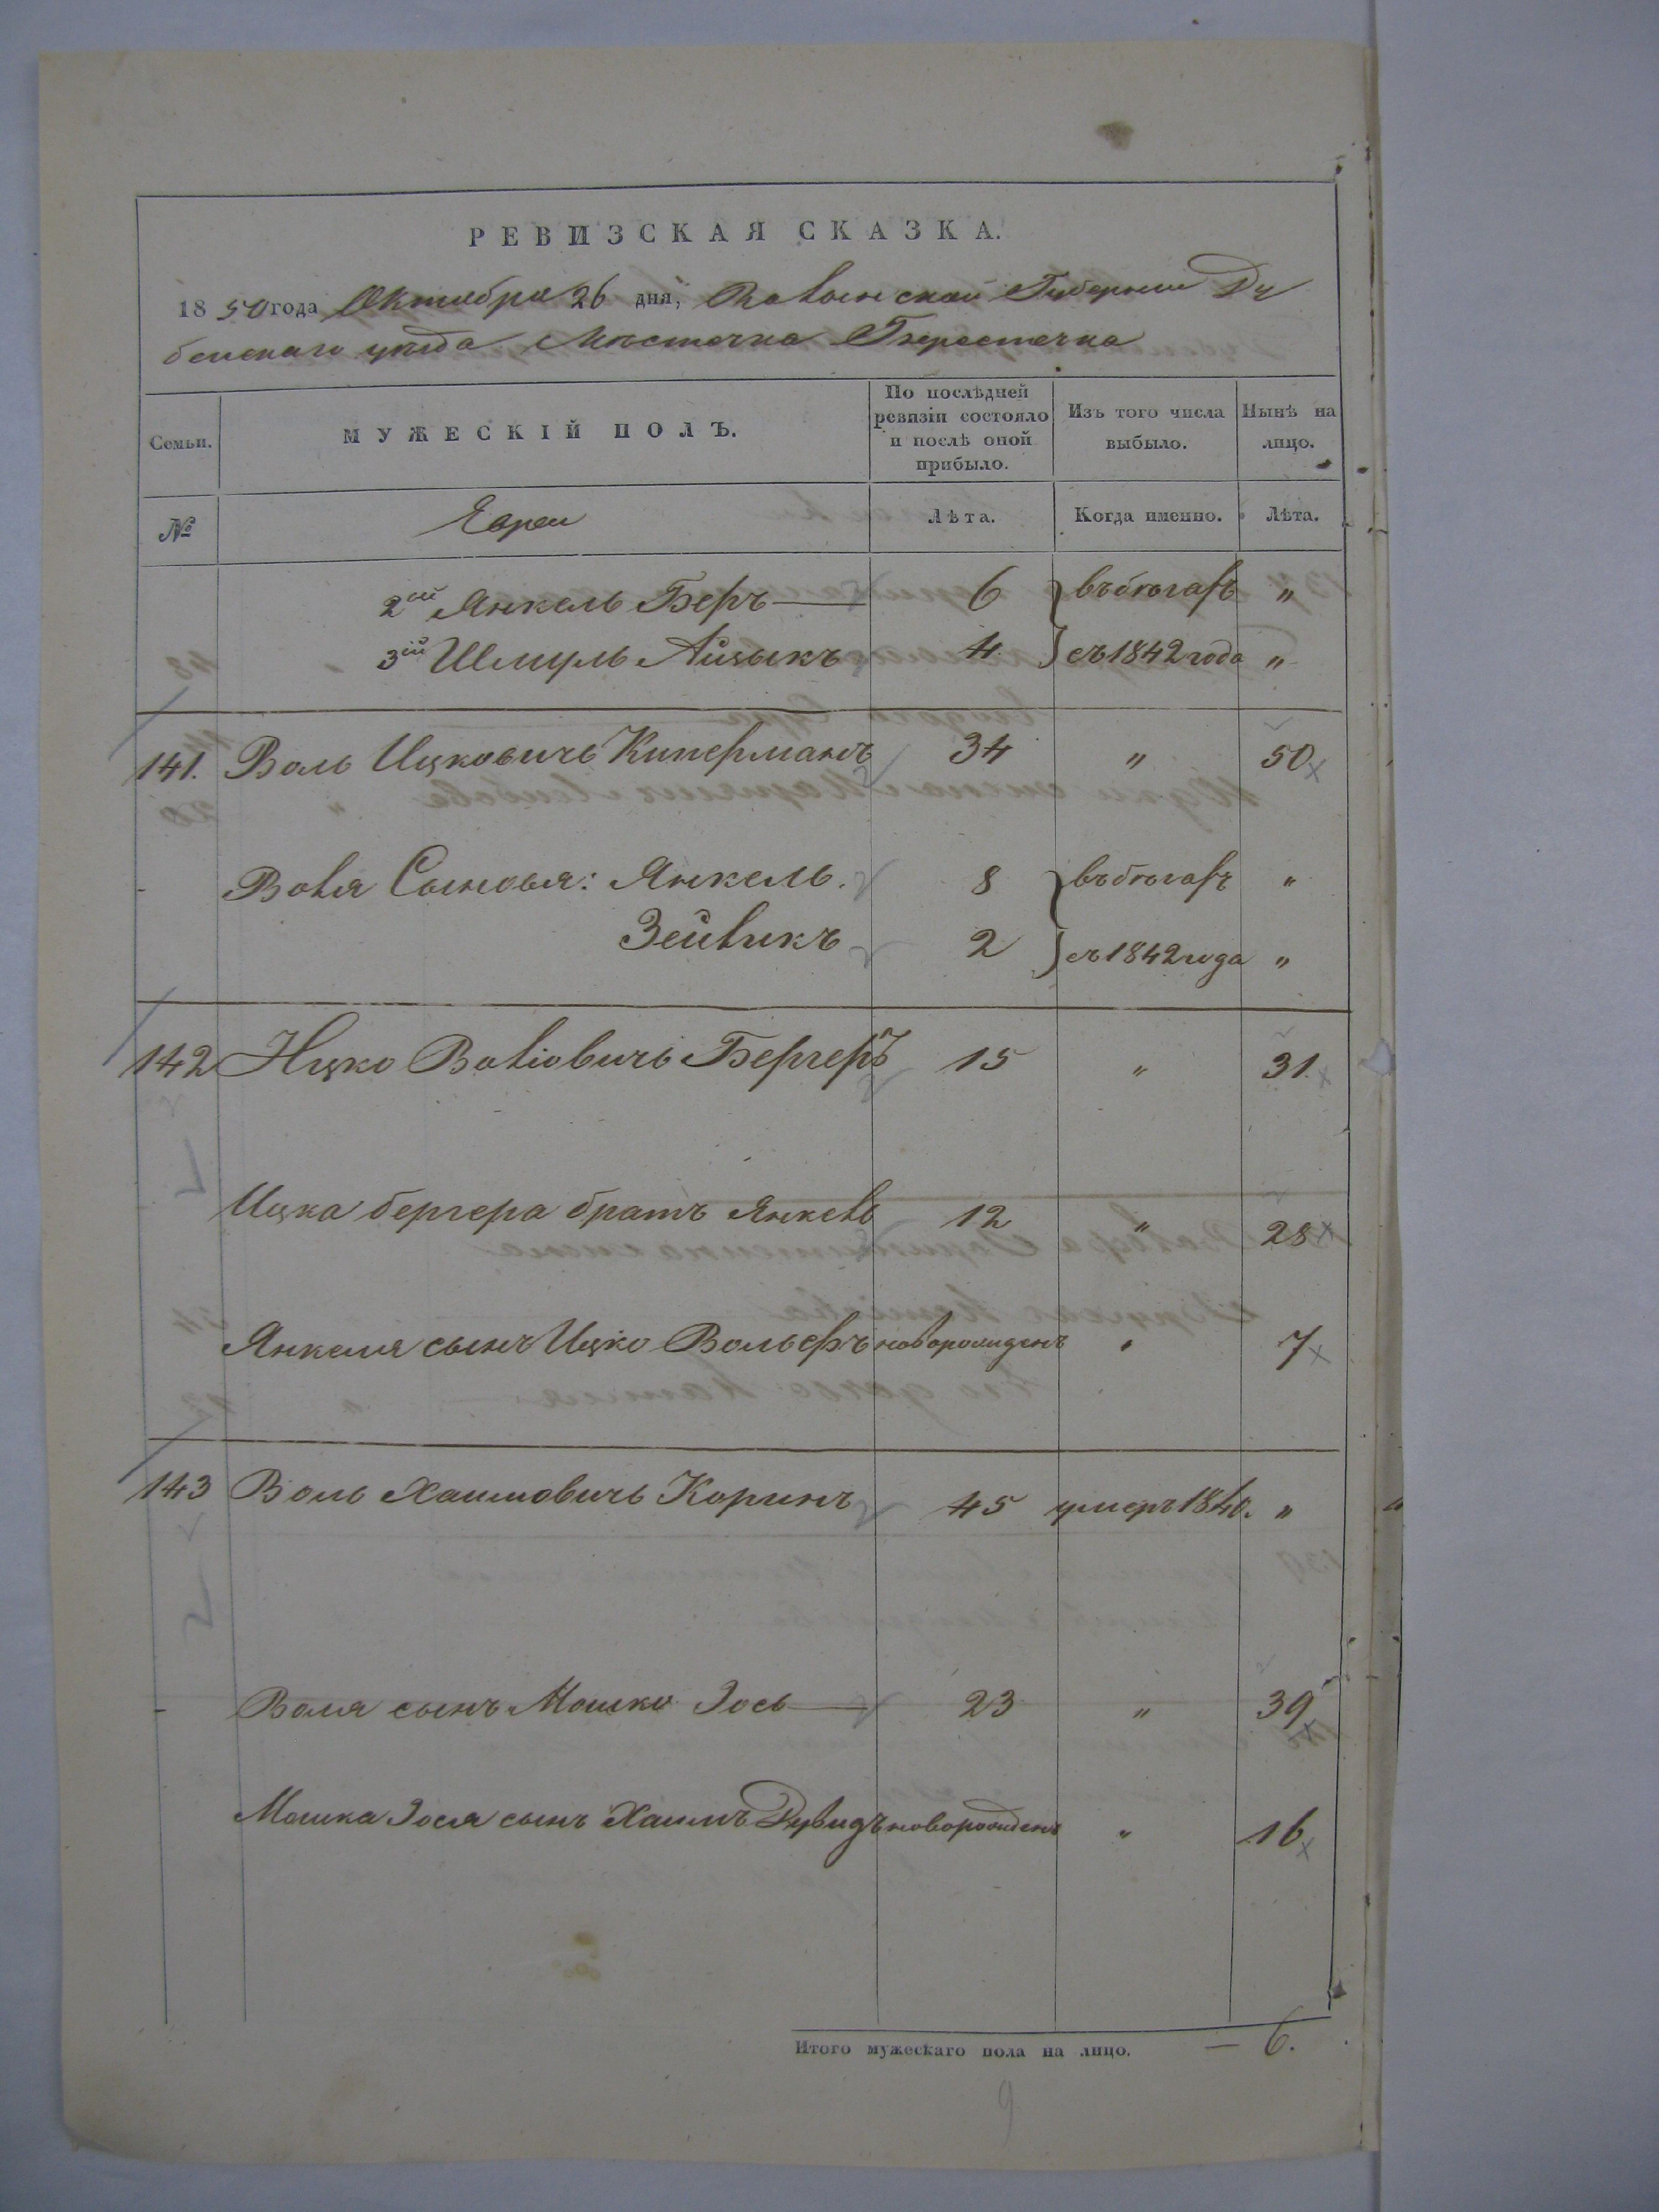 РЕВИЗСКАЯ СКАЗКА.
1850 года Октября 26 дня, Волынской Губернии Ду
бенскаго уезда Местечка Берестечка
Семьи.
МУЖЕСКІЙ ПОЛЪ.
По послѣдней ревизіи состояло и послѣ оной прибыло.
Изъ того числа выбыло.
Нынѣ на лицо.
№
Евреи
Лѣта.
Когда именно.
Лѣта.
2ий Янкель Беръ 6 въ бѣгахъ „
3ій Шмуль Айзыкъ 4 съ 1842 года „
141. Воль Ицковичъ Киперманъ 34 „ 50
Воля Сыновья: Янкель. 8 въ бѣгахъ „
Зейликъ 2 съ 1842 года „
142 Ицко Воліовичъ Бергеръ 15 „ 31.
Ицка бергера братъ Янкель 12 „ 28
Янкеля сынъ Ицко Вольфъ новорожденъ „ 7
143 Воль Хаимовичъ Коринъ 45 умеръ 1840. „
Воля сынъ Мошко Іось 23 „ 39
Мошка Іося сынъ Хаимъ Дувидъ новорожденъ „ 16
Итого мужескаго пола на лицо. — 6.
9